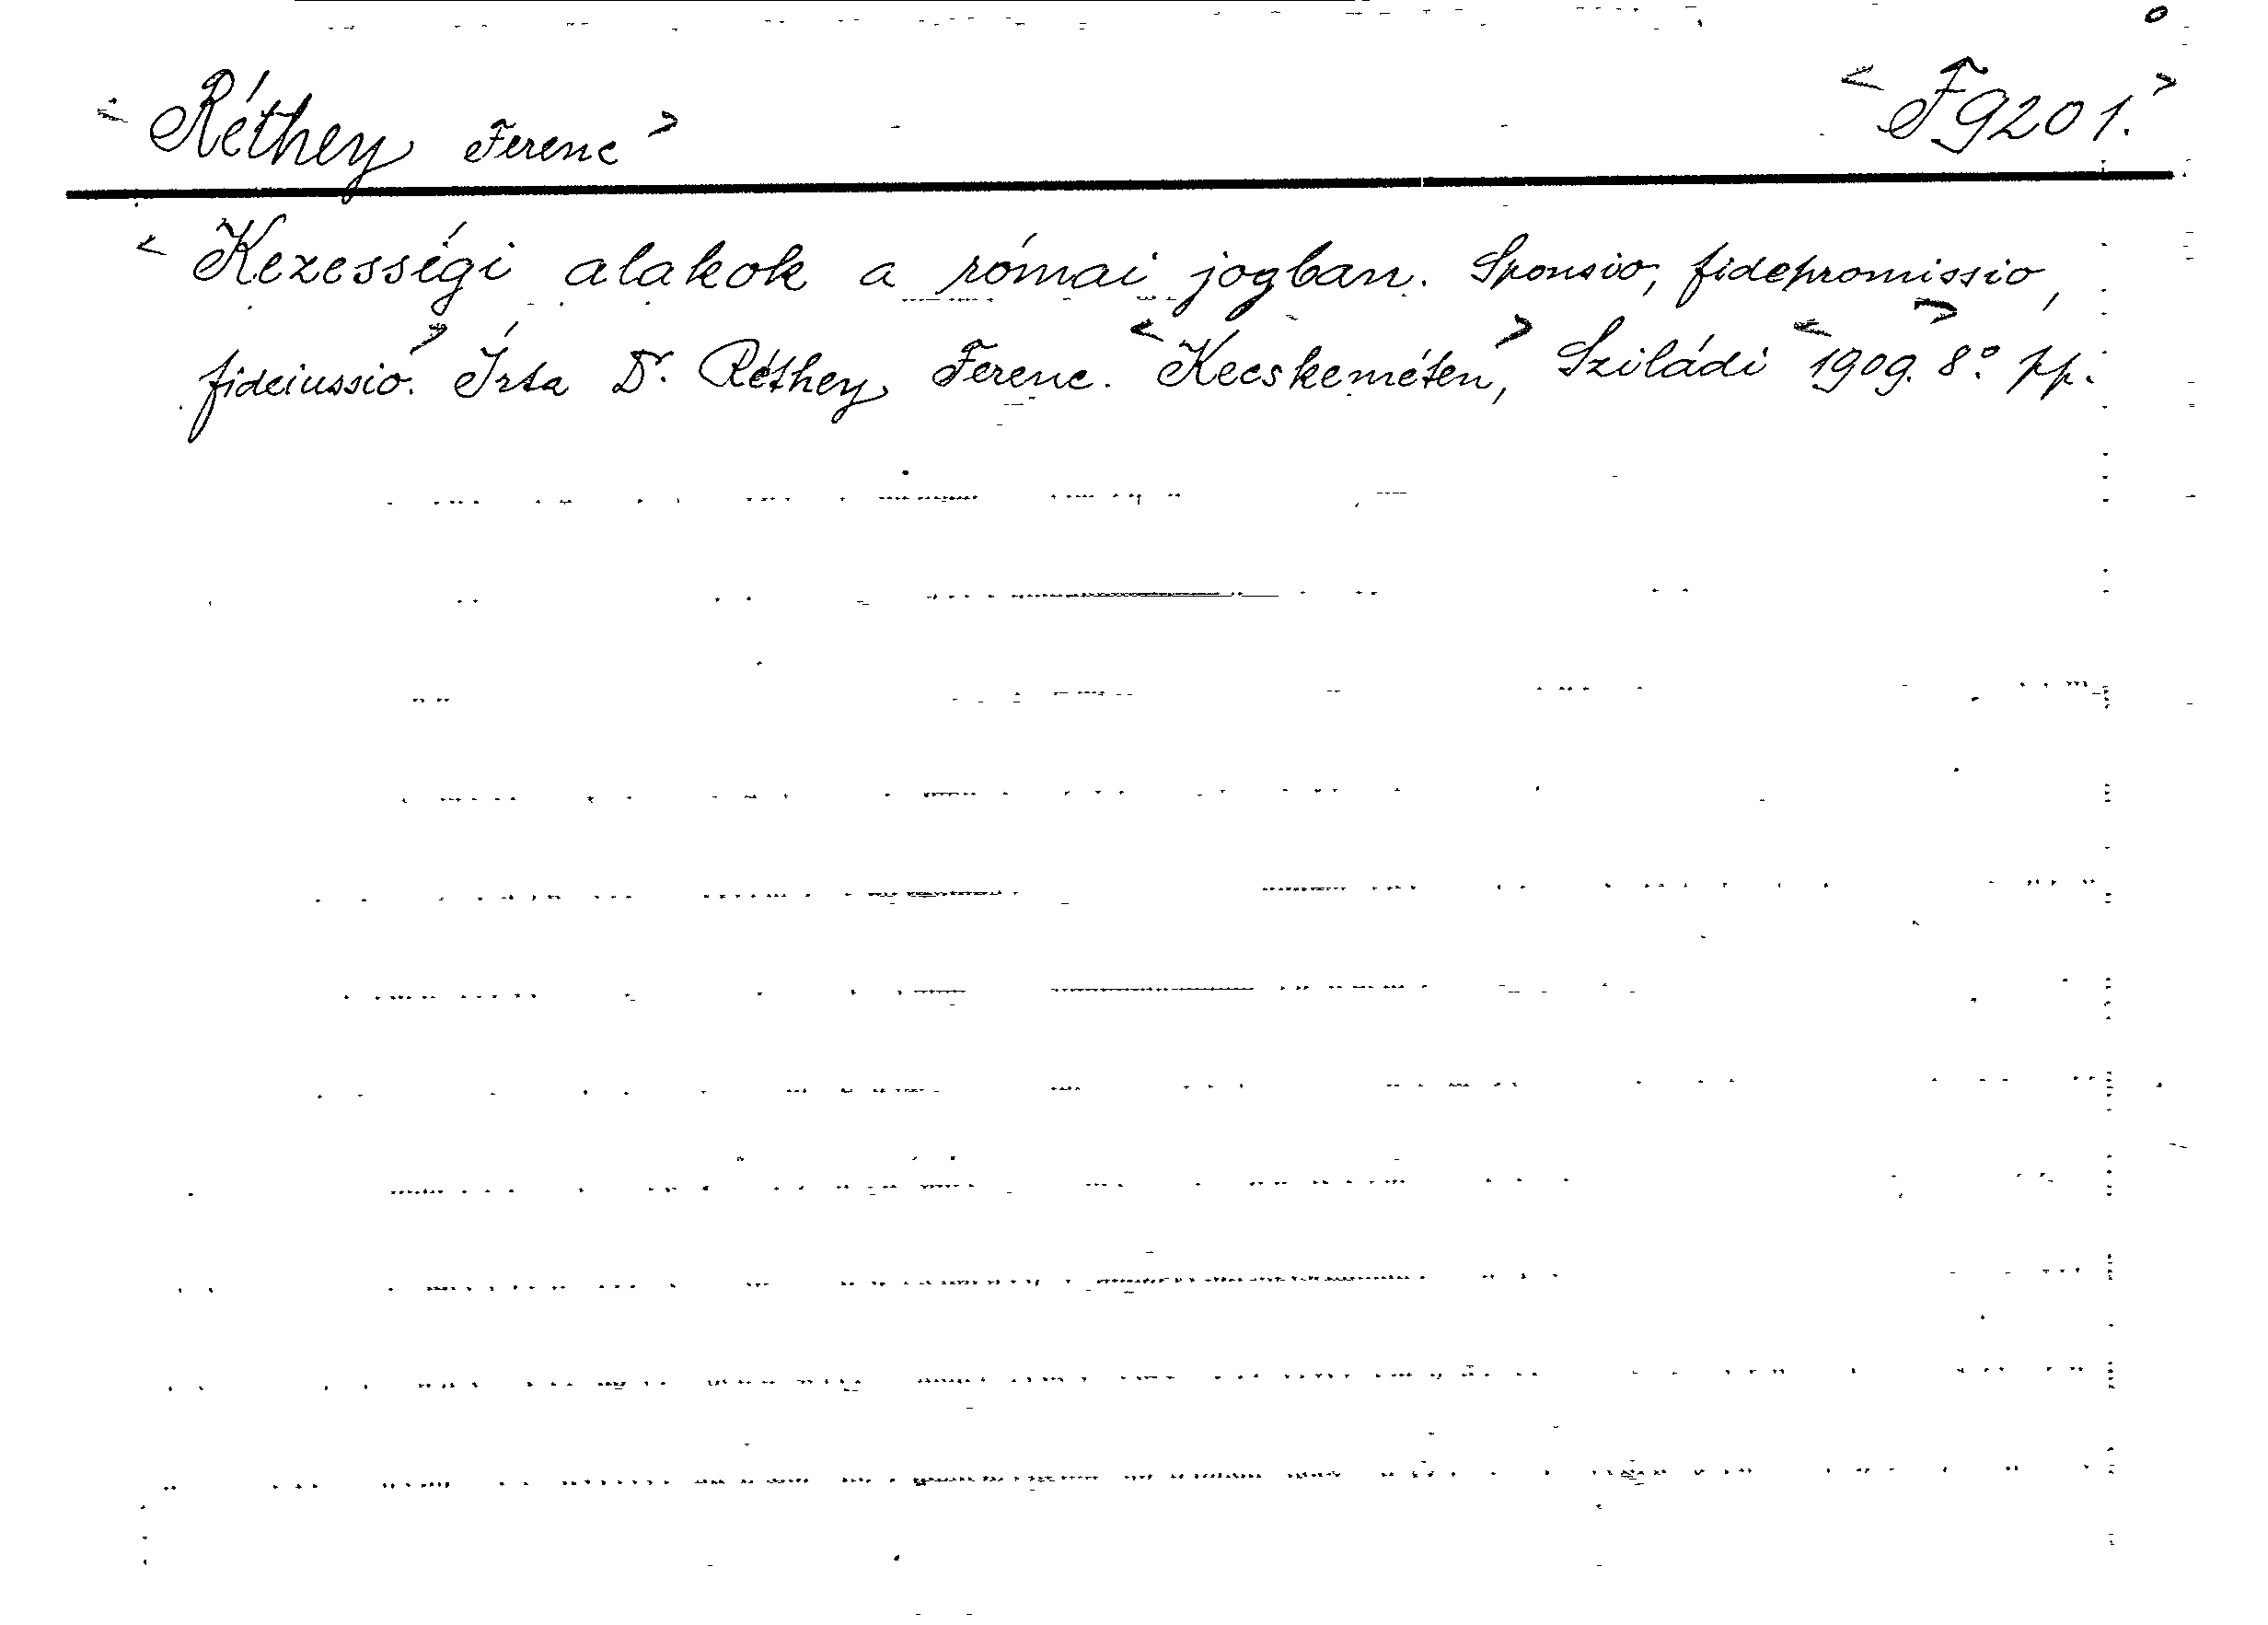 < Réthey Ferenc > < F 9201. >
< Kezességi alakok a római jogban. Sponsio, fidepromissio,
fideiussio. > Írta Dr. Réthey Ferenc. < Kecskeméten, > Sziládi < 1909. > 8° pp.